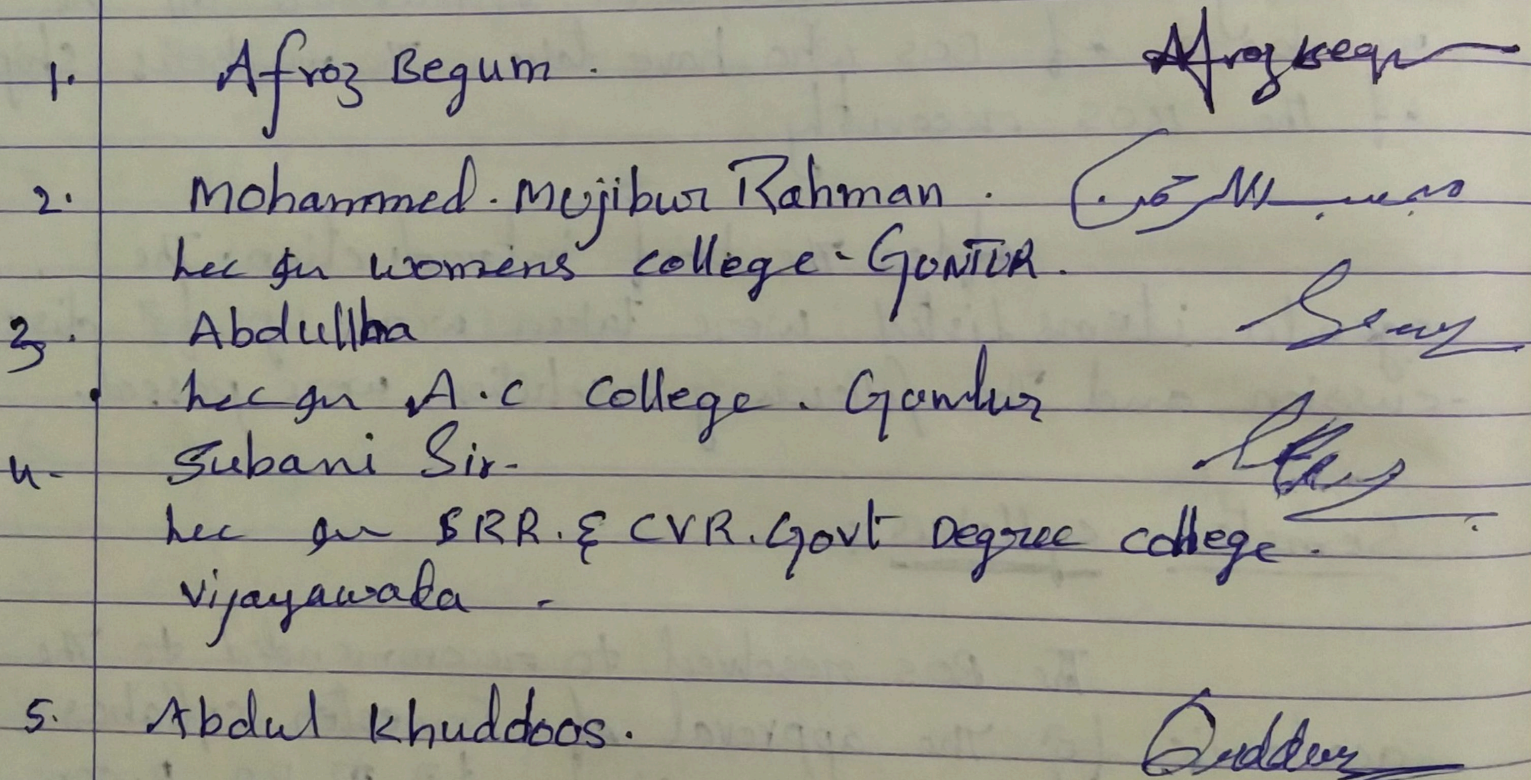 1. Afroz Begum. Afroz Begu
2. Mohammed. Mujibur Rahman. مجیب الرحمن
Lec in womens college - GUNTUR.
3. Abdullha
Lec in A.C College. Guntur
4- Subani Sir-
Lec in SRR. & CVR. Govt Degree college.
vijayawada -
5. Abdul Khuddoos. Quddus